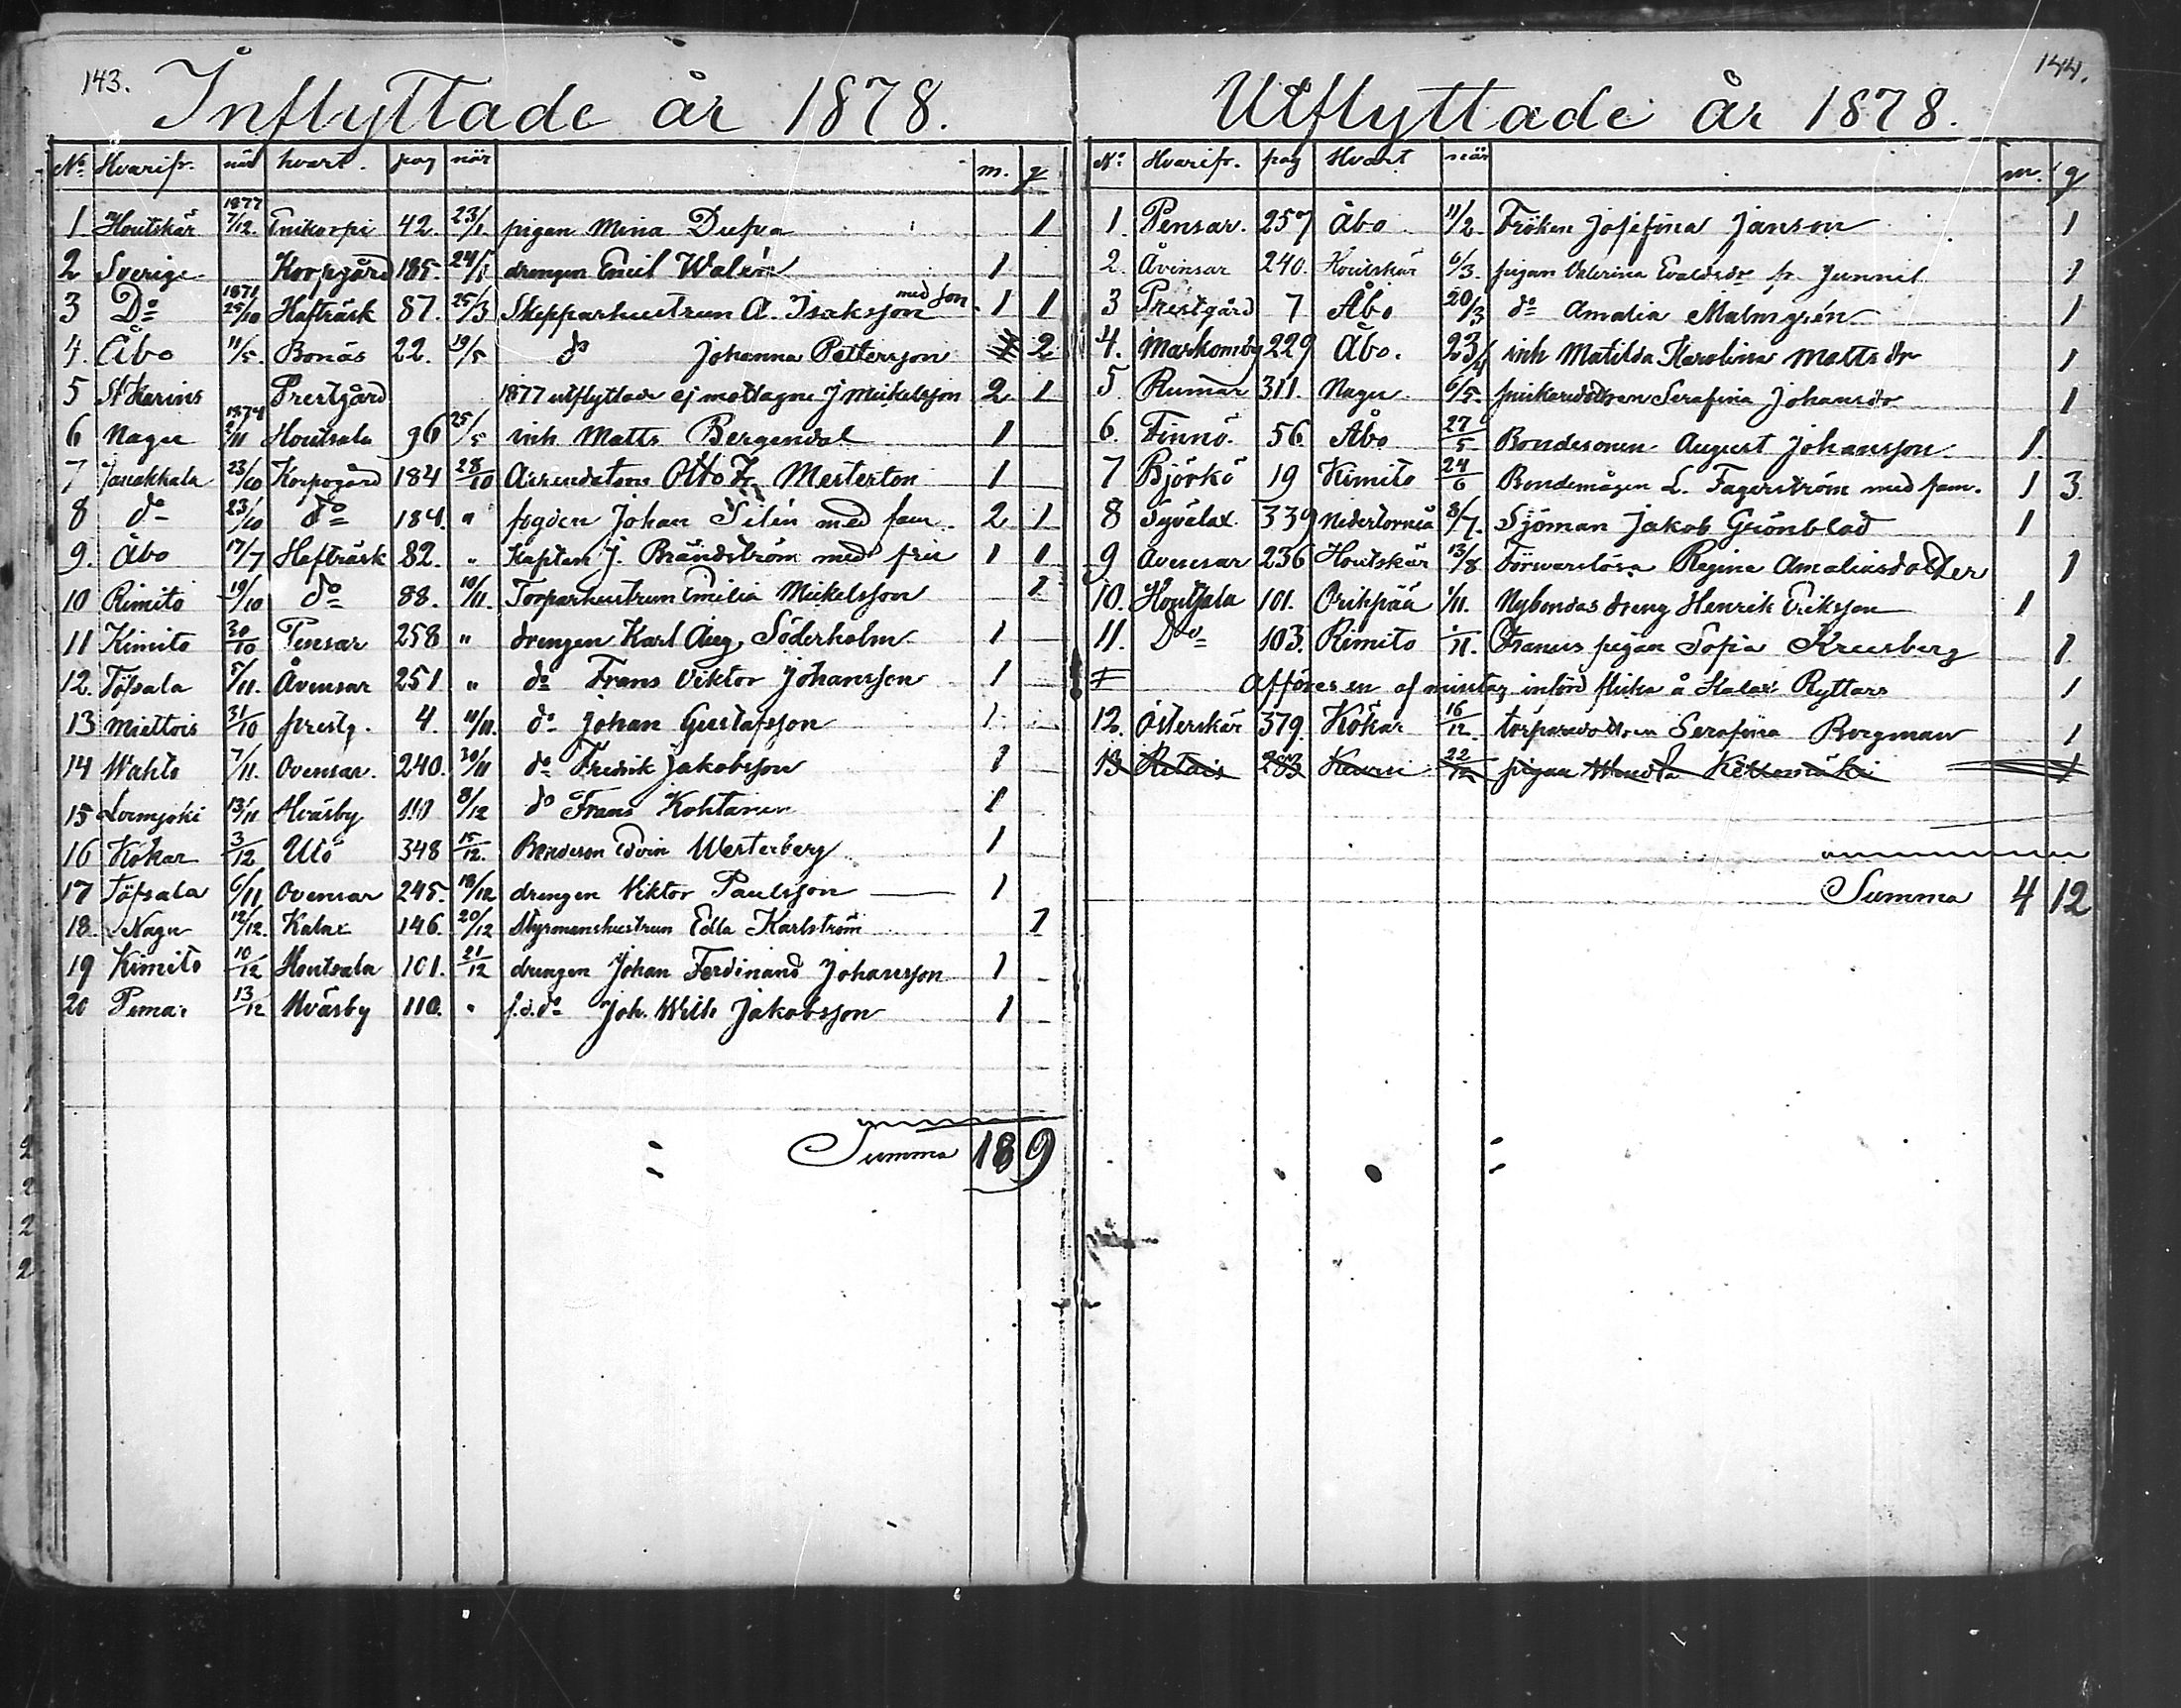 143.
Inflyttade år 1878.
No Hvarifr. når hvart. pag når m. q
1 Houtskär 1877 7/12. Enikorpi 42. 23/1 pigan Mina Dufva 1
2 Sverige Korpogård 185. 24/1 drengen Emil Walén 1
3 Do 1871 25/10 Hafträsk 87. 25/3 Skepparhustrun A. Isaksson med son 1 1
4. Åbo 11/5. Bonäs 22. 19/5 do Johanna Pettersson 2
5 St Karins Prestgård 1877 utflyttade ej mottagne J Mickelsson 2 1
6 Nagu 1874 2/11 Houtsala 96 25/5 inh. Matts Bergendal 1
7 Janakkala 23/10 Korpogård 184 28/10 Arrendatorn Otto Fr Mesterton 1
8 do 23/10 do 184. " fogden Johan Silén med fam. 2 1
9. Åbo 17/7 Hafträsk 82. " Kapten J. Brändström med fru 1 1
10 Rimito 19/10 do 88. 10/11. Torparhustrun Emilia Mickelsson 1
11 Kimito 30/10 Pensar 258 " drengen Karl Aug. Söderholm 1
12. Töfsala 5/11. Åvensar 251 " do Frans Viktor Johansson 1
13 Miettois 31/10 prestg. 4. 11/11. do Johan Gustafsson 1
14 Wahto 7/11. Ovensar. 240. 30/11 do Fredrik Jakobsson 1
15 Loimjoki 13/11 Hväsby 110 8/12 do Frans Kohtanen 1
16 Kökar 3/12 Utö 348 15/12. Bondeson Edvin Westerberg 1
17 Töfsala 6/11 Ovensar 245. 18/12 drengen Viktor Paulsson 1
18. Nagu 12/12. Kalax 146. 20/12 Styrmanshustrun Edla Karlström 1
19 Kimito 10/12 Houtsala 101. 21/12 drengen Johan Ferdinand Johansson 1
20 Pemar 13/12 Hväsby 110. " f.d.do Joh. Wilh Jakobsson 1
Summa 18 9
144.
Utflyttade år 1878.
No Hvarifr. pag Hvart när m. q
1. Pensar. 257 Åbo 11/2. Fröken Josefina Janson 1
2. Åvinsar 240. Houtskär 6/3. pigan Valerina Evaldsdr fr. Junnil 1
3 Prestgård 7 Åbo 20/3 do Amalia Malmgrén 1
4. Maskomby 229 Åbo. 23/4 inh Matilda Karolina Mattsdr 1
5 Rumar 311. Nagu 6/5. snickaredottren Serafina Johansdr 1
6. Finnö. 56 Åbo 27/5 Bondesonen August Johansson 1
7 Björkö 19 Kimito 24/6 Bondemågen L. Fagerström med fam. 1 3
8 Syvelax 339 Nedertorneå 8/7. Sjöman Jakob Grönblad 1
9 Avensar 236 Houtskär 13/8 Försvarslösa Regina Amaliasdotter 1
10. Houtsala 101. Orihpää 1/11. Nybondas dreng Henrik Eriksson 1
11. Do 103. Rimito 1/11. Ofranus pigan Sofia Kreusberg 1
Afföres en af misstag införd flicka å Kalax Ryttars 1
12. Österskär 379. Kökar 16/12. torparedottren Serafina Borgman 1
13 283 22/12 pigan
Summa 4 12